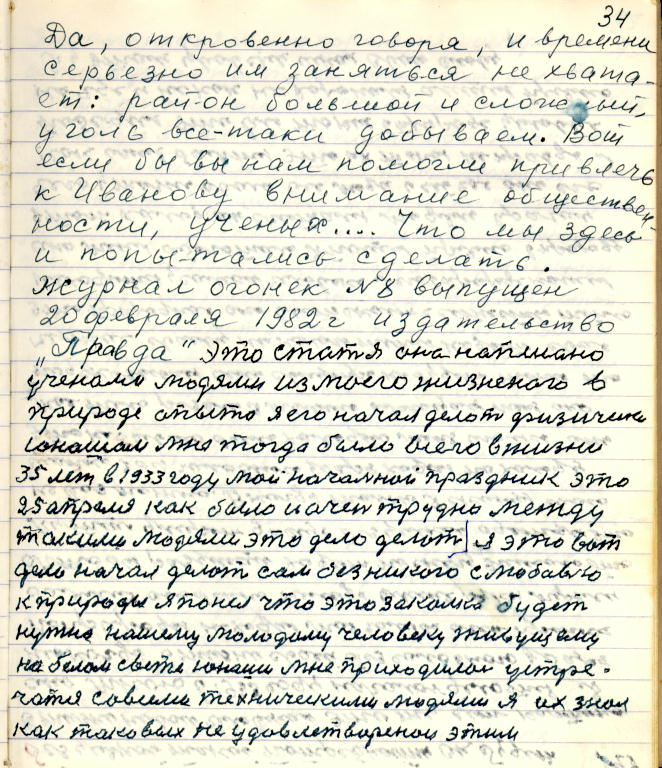 34
Да, откровенно говоря, и времени
серьезно им заняться не хвата-
ет: район большой и сложный,
уголь все-таки добываем. Вот
если бы вы нам помогли привлечь
к Иванову внимание обществен-
ности, ученых.... Что мы здесь
и попытались сделать.
журнал огонек №8 выпущен
20 февраля 1982 г издательство
„Правда“ это статя она написано
учеными людями из моего жизненого в
природе опыта я его начал делот физически
юношам мне тогда было всего в жизни
35 лет в 1933 году мой началной праздник это
25 апреля как было и очен трудно между
такими людями это дело делот я это вот
дело начал делот сам без никого с любавю
к природы я понел что это закалка будет
нужна нашему молодому человеку живущему
на белом свете юноши мне приходилос устре-
чатя совсеми техническими людями я их знал
как таковых не удовлетвореной этим